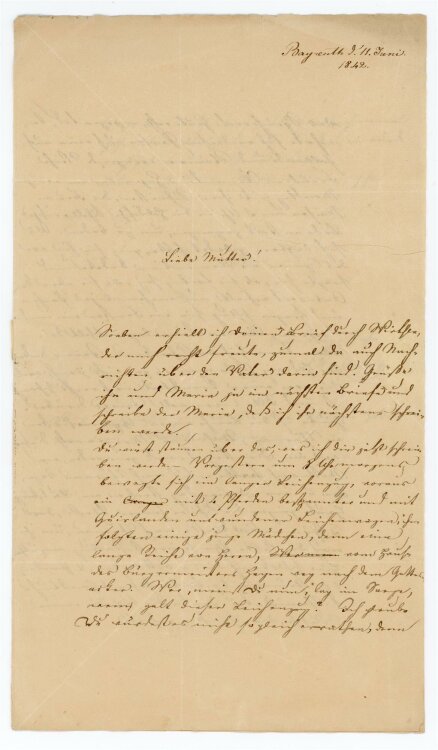 Bayreuth d. 11. Juni
1842.
Liebe Mutter!
Soeben erhielt ich deinen Brief durch Wilhelm,
der mich recht freute, zumal da auch Nach-
richten über den Vater darin sind. Grüße
ihn und Marie ja im nächsten Briefe und
schreibe der Marie, daß ich ihr nächstens schrei-
ben werde.
Du wirst staunen über das, was ich dir jetzt schrei-
ben werde. Vorgestern um 8 Uhr morgens
bewegte sich ein langer Leichenzug, voraus
ein mit 4 Pferden bespannter und mit
Guirlanden umwundener Leichenwagen, ihm
folgten einige junge Mädchen, dann eine
lange Reihe von Herren, vom Hause
des Bürgermeisters Hagen weg nach dem Gottes-
acker. Wer, meinst du nun, lag im Sarge,
wem galt dieser Leichenzug? Ich glaube
du würdest es nicht sogleich errathen, denn